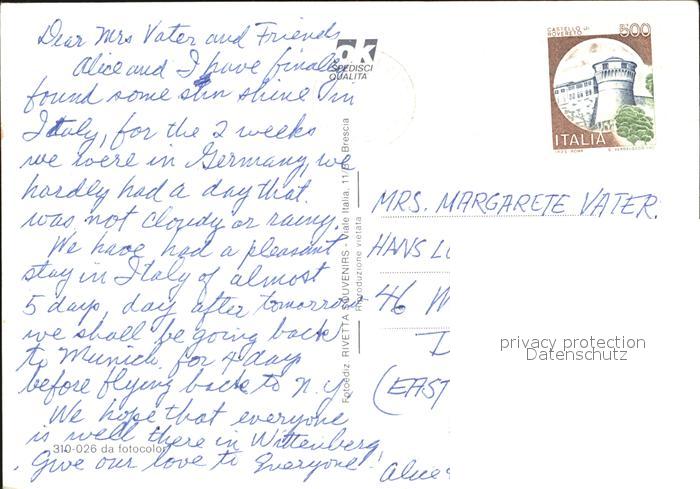 Dear Mrs Vater and Friends
Alice and I have finally
found some sun shine in
Italy, for the 2 weeks
we were in Germany, we
hardly had a day that
was not cloudy or rainy.
We have had a pleasant
stay in Italy of almost
5 days, day after tomorrow
we shall be going back
to Munich for 4 days
before flying back to N.Y.
We hope that everyone
is well there in Wittenberg
Give our love to Everyone!
Alice
310-026 da fotocolor
ok
SPEDISCI
QUALITÀ
Fotoediz. RIVETTA SOUVENIRS - Viale Italia, 11/ Brescia
Riproduzione vietata
CASTELLO DI
ROVERETO
500
ITALIA
MRS. MARGARETE VATER.
HANS
46
(EAST
privacy protection
Datenschutz